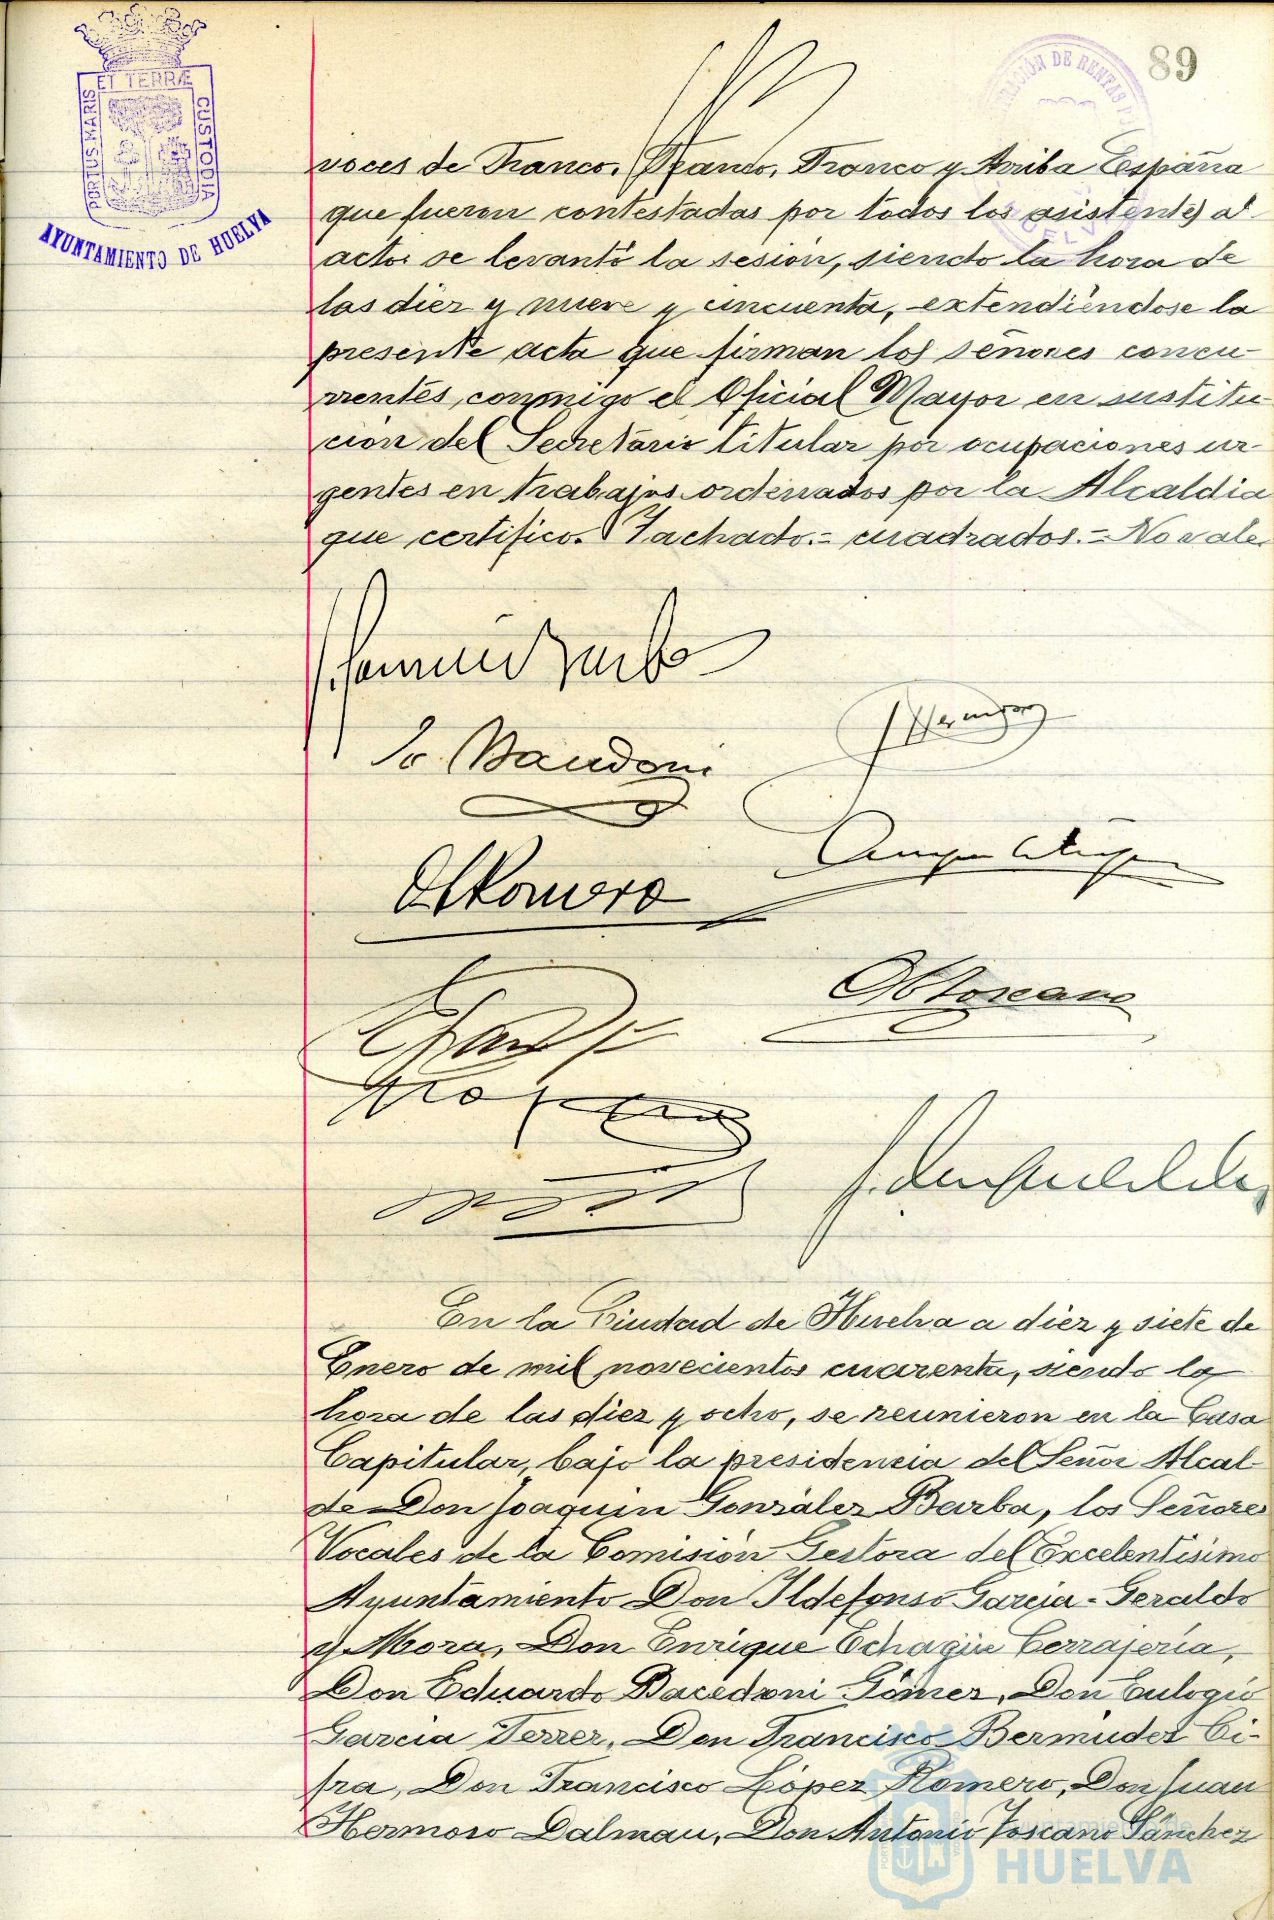 ET TERRÆ
PORTUS MARIS
CUSTODIA
AYUNTAMIENTO DE HUELVA
DE RENTAS
HUELVA
89
voces de Franco, Franco, Franco y Arriba España
que fueron contestadas por todos los asistentes al
acto, se levantó la sesión, siendo la hora de
las diez y nueve y cincuenta, extendiéndose la
presente acta que firman los señores concu-
rrentes, conmigo el Oficial Mayor en sustitu-
ción del Secretario titular por ocupaciones ur-
gentes en trabajos ordenados por la Alcaldia
que certifico. Tachado.= cuadrados.= No vale.
En la Ciudad de Huelva a diez y siete de
Enero de mil novecientos cuarenta, siendo la
hora de las diez y ocho, se reunieron en la Casa
Capitular, bajo la presidencia del Señor Alcal-
de Don Joaquin González Barba, los Señores
Vocales de la Comisión Gestora del Excelentisimo
Ayuntamiento Don Ildefonso Garcia-Geraldo
y Mora, Don Enrique Echagüe Cerrajería,
Don Eduardo Bacedoni Gómez, Don Eulogio
Garcia Ferrer, Don Francisco Bermudez Ci-
fra, Don Francisco López Romero, Don Juan
Hermoso Dalmau, Don Antonio Toscano Sánchez
Ayuntamiento de
HUELVA